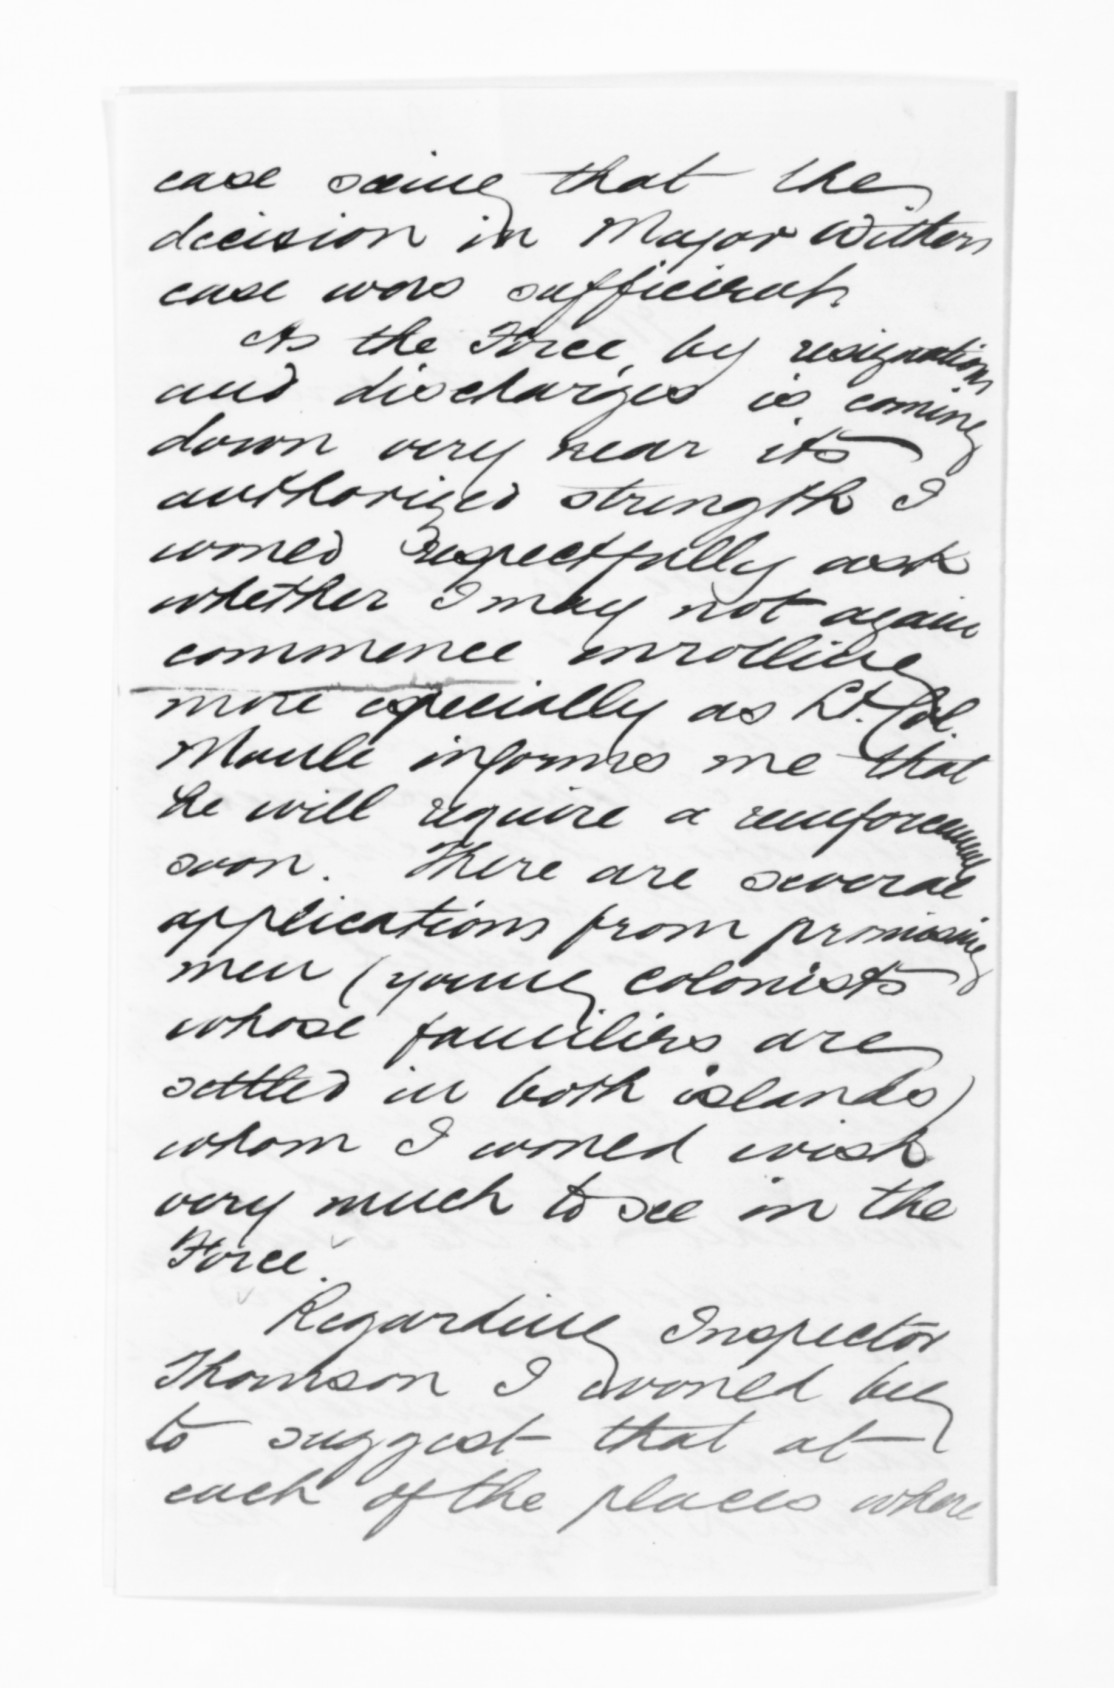 case seeing that the
decision in Major Withers
case was sufficient.
As the Force, by resignations
and discharges is coming
down very near its
authorized strength I
would respectfully ask
whether I may not again
commence enrolling
more especially as Lt. Col.
Moule informs me that
he will require a reinforcement
soon. There are several
applications from promising
men (young colonists
whose families are
settled in both islands)
whom I would wish
very much to see in the
Force.
Regarding Inspector
Thomson I would beg
to suggest that at
each of the places where